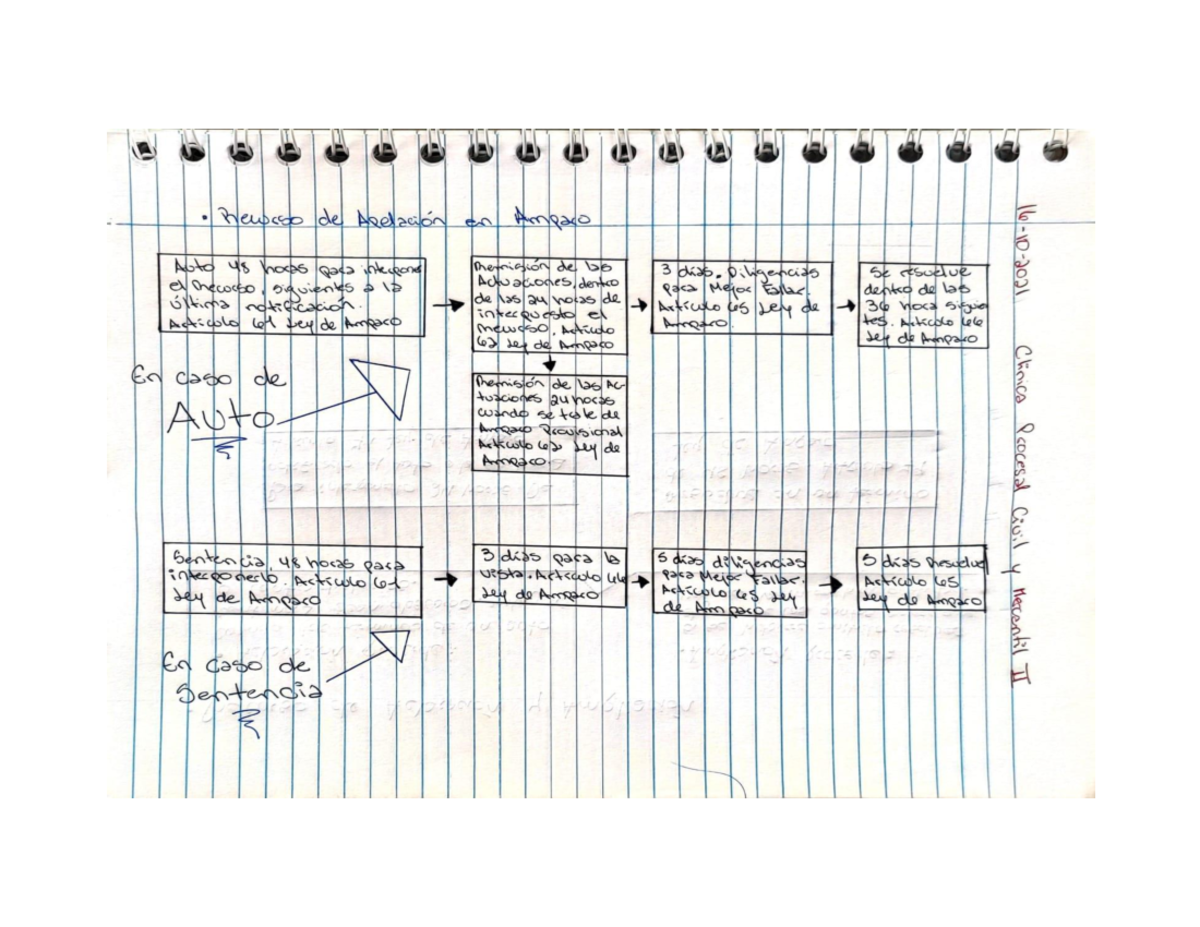 • Recurso de Apelación en Amparo
Auto 48 horas para interponer
el recurso, siguientes a la
última notificación.
Artículo 61 Ley de Amparo
Remisión de las
Actuaciones, dentro
de las 24 horas de
interpuesto el
recurso. Artículo
62 Ley de Amparo
3 días. Diligencias
para Mejor Fallar.
Artículo 65 Ley de
Amparo.
Se resuelve
dentro de las
36 hora siguien
tes. Artículo 66
Ley de Amparo
Remisión de las Ac-
tuaciones 24 horas
cuando se trate de
Amparo Provisional
Artículo 62 Ley de
Amparo.
En caso de
Auto
Sentencia, 48 horas para
interponerlo. Artículo 61
Ley de Amparo
3 días para la
vista. Artículo 66
Ley de Amparo
5 días diligencias
para Mejor Fallar.
Artículo 65 Ley
de Amparo
5 días Resuelve
Artículo 65
Ley de Amparo
En caso de
Sentencia
16-10-2021 Clínica Procesal Civil y Mercantil II